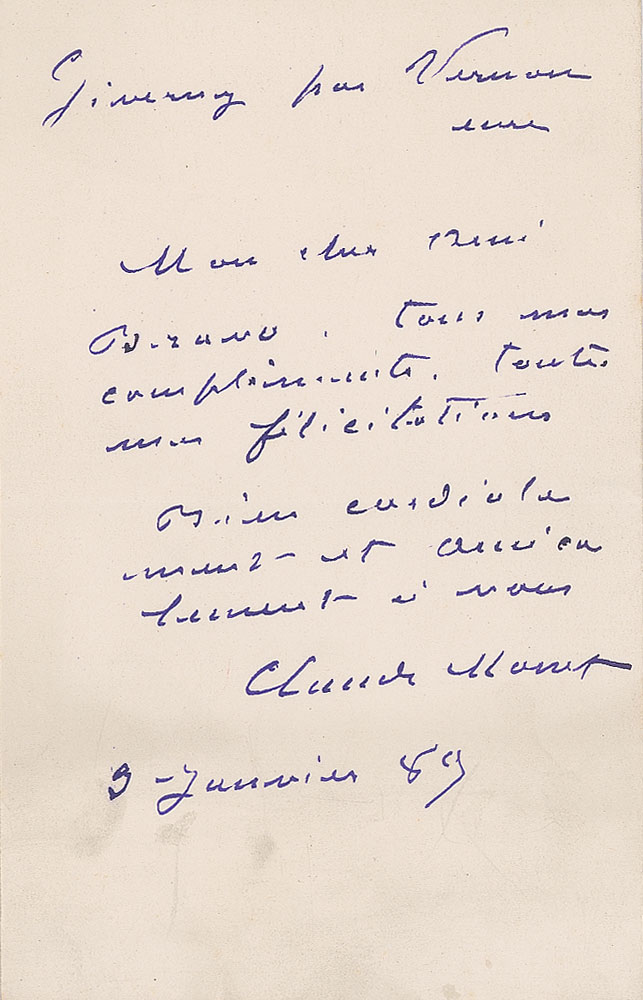 Giverny par Vernon
eure
Mon cher ami
Bravo, tous mes
compliments, toutes
mes félicitations
Bien cordiale
ment et amica
lement à vous
Claude Monet
9 Janvier 89